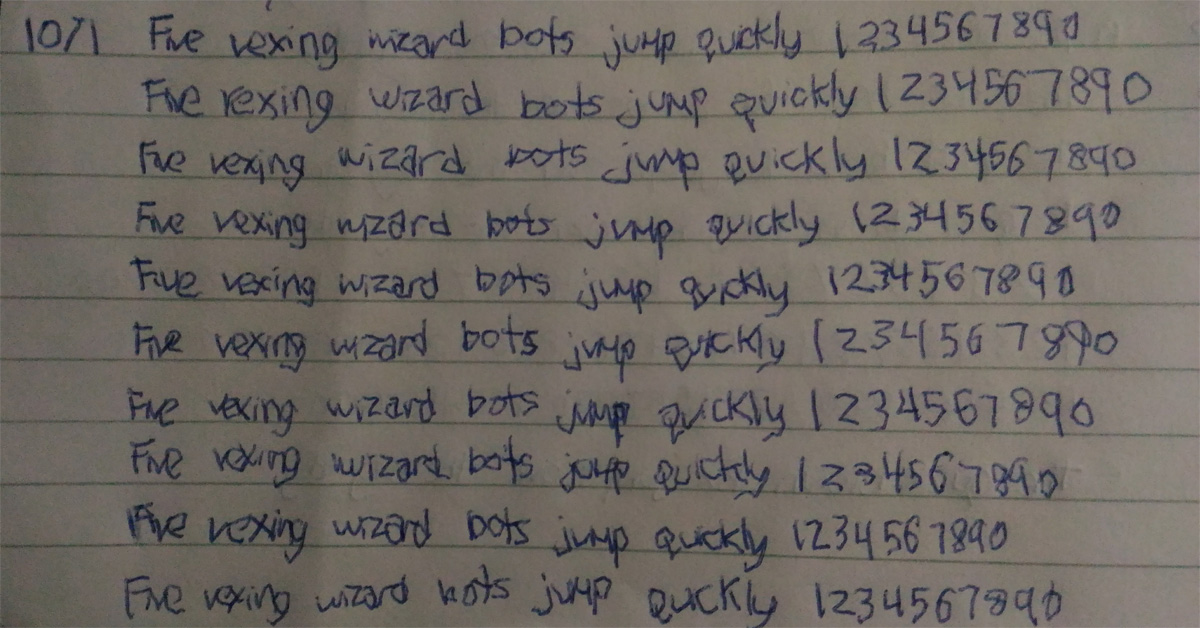 10/1 Five vexing wizard bots jump quickly 1234567890
Five vexing wizard bots jump quickly 1234567890
Five vexing wizard bots jump quickly 1234567890
Five vexing wizard bots jump quickly 1234567890
Five vexing wizard bots jump quickly 1234567890
Five vexing wizard bots jump quickly 1234567890
Five vexing wizard bots jump quickly 1234567890
Five vexing wizard bots jump quickly 1234567890
Five vexing wizard bots jump quickly 1234567890
Five vexing wizard bots jump quickly 1234567890